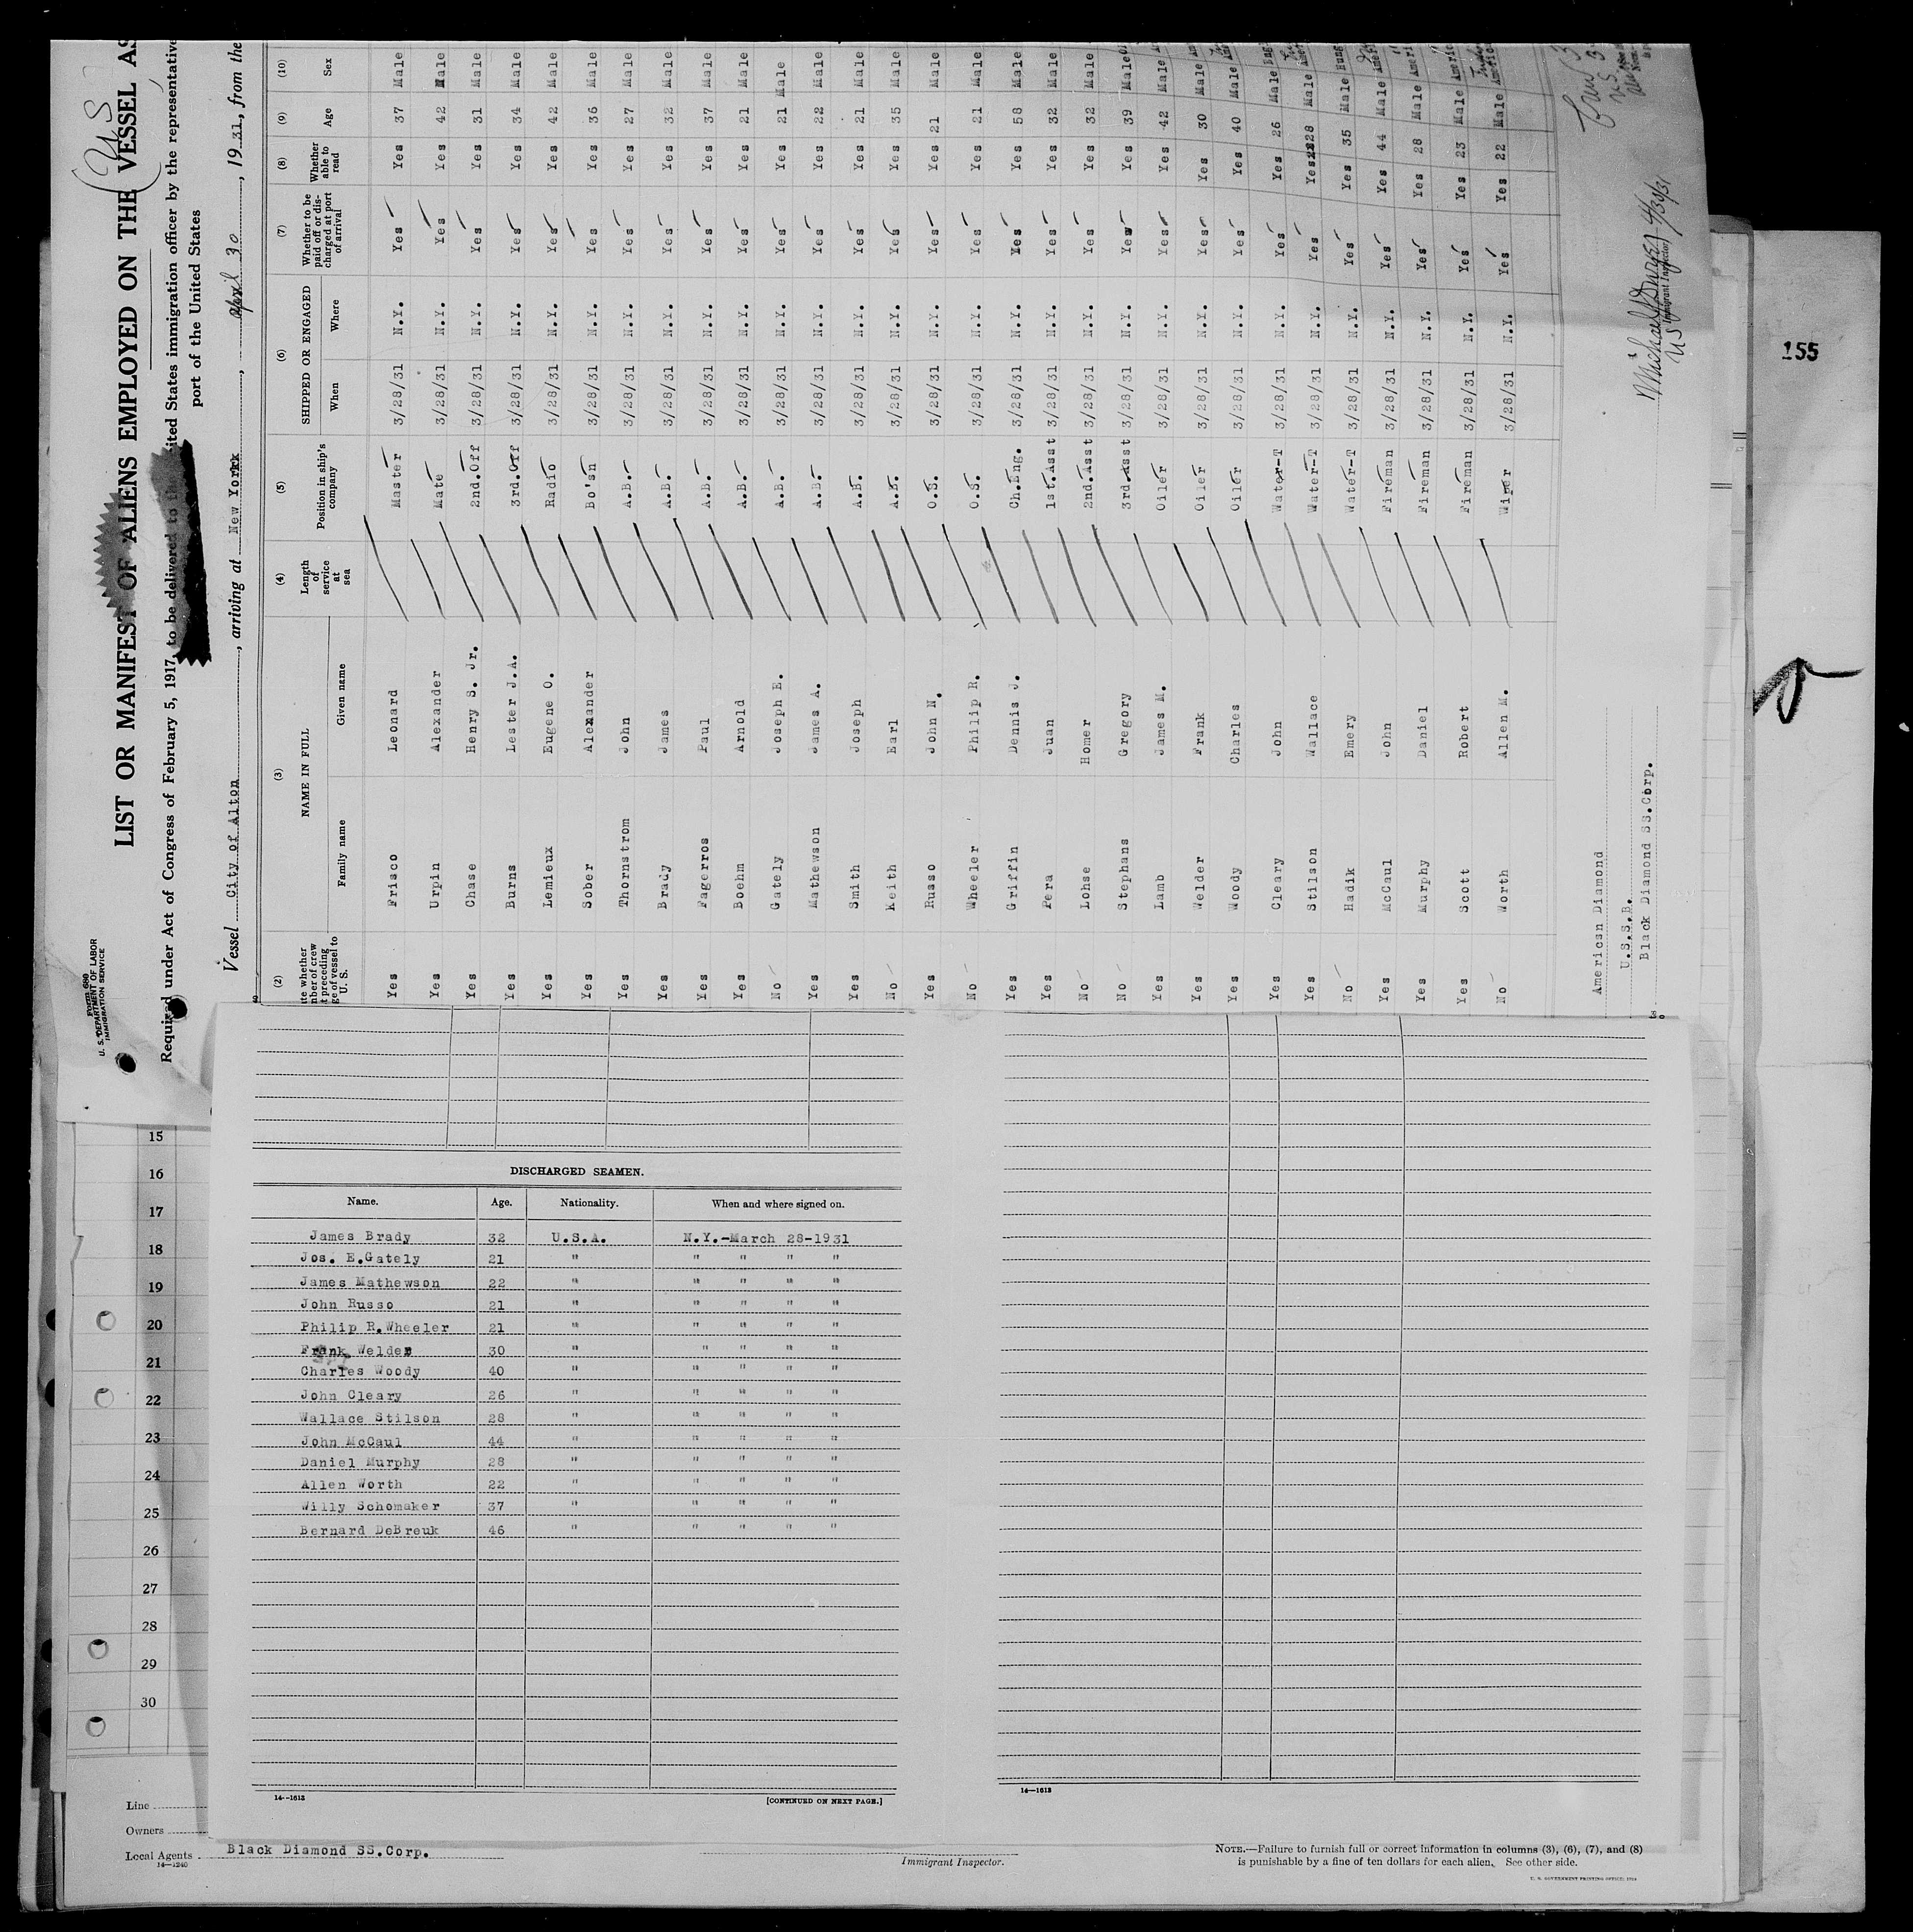 Form 680
U. S. DEPARTMENT OF LABOR
IMMIGRATION SERVICE
U S
LIST OR MANIFEST OF ALIENS EMPLOYED ON THE VESSEL AS
Required under Act of Congress of February 5, 1917, to be delivered to the United States immigration officer by the representative
port of the United States
Vessel City of Alton, arriving at New York, April 30, 1931, from the
(2) (3) (4) (5) (6) (7) (8) (9) (10)
NAME IN FULL Length of service at sea Position in ship's company SHIPPED OR ENGAGED Whether to be paid off or discharged at port of arrival Whether able to read Age Sex
Family name Given name When Where
Yes Frisco Leonard Master 3/28/31 N.Y. Yes Yes 37 Male
Yes Urpin Alexander Mate 3/28/31 N.Y. Yes Yes 42 Male
Yes Chase Henry S. Jr. 2nd.Off 3/28/31 N.Y. Yes Yes 31 Male
Yes Burns Lester J.A. 3rd.Off 3/28/31 N.Y. Yes Yes 34 Male
Yes Lemieux Eugene O. Radio 3/28/31 N.Y. Yes Yes 42 Male
Yes Sober Alexander Bo'sn 3/28/31 N.Y. Yes Yes 36 Male
Yes Thornstrom John A.B. 3/28/31 N.Y. Yes Yes 27 Male
Yes Brady James A.B. 3/28/31 N.Y. Yes Yes 32 Male
Yes Fagerros Paul A.B. 3/28/31 N.Y. Yes Yes 37 Male
Yes Boehm Arnold A.B. 3/28/31 N.Y. Yes Yes 21 Male
No Gately Joseph E. A.B. 3/28/31 N.Y. Yes Yes 21 Male
Yes Mathewson James A. A.B. 3/28/31 N.Y. Yes Yes 22 Male
Yes Smith Joseph A.B. 3/28/31 N.Y. Yes Yes 21 Male
No Keith Earl A.B. 3/28/31 N.Y. Yes Yes 35 Male
Yes Russo John N. O.S. 3/28/31 N.Y. Yes Yes 21 Male
No Wheeler Philip R. O.S. 3/28/31 N.Y. Yes Yes 21 Male
Yes Griffin Dennis J. Ch.Eng. 3/28/31 N.Y. Yes Yes 58 Male
Yes Pera Juan 1st.Asst 3/28/31 N.Y. Yes Yes 32 Male
No Lohse Homer 2nd.Asst 3/28/31 N.Y. Yes Yes 32 Male
No Stephans Gregory 3rd.Asst 3/28/31 N.Y. Yes Yes 39 Male
Yes Lamb James M. Oiler 3/28/31 N.Y. Yes Yes 42 Male
Yes Welder Frank Oiler 3/28/31 N.Y. Yes Yes 30 Male
Yes Woody Charles Oiler 3/28/31 N.Y. Yes Yes 40 Male
Yes Cleary John Water-T 3/28/31 N.Y. Yes Yes 26 Male
Yes Stilson Wallace Water-T 3/28/31 N.Y. Yes Yes 28 Male
No Hadik Emery Water-T 3/28/31 N.Y. Yes Yes 35 Male
Yes McCaul John Fireman 3/28/31 N.Y. Yes Yes 44 Male
Yes Murphy Daniel Fireman 3/28/31 N.Y. Yes Yes 28 Male
Yes Scott Robert Fireman 3/28/31 N.Y. Yes Yes 23 Male
No Worth Allen M. Wiper 3/28/31 N.Y. Yes Yes 22 Male
Americsn Diamond
U.S.S.B.
Black Diamond SS.Corp.
4/30/31
Immigrant Inspector
155
15
16
17
18
19
20
21
22
23
24
25
26
27
28
29
30
DISCHARGED SEAMEN.
Name. Age. Nationality. When and where signed on.
James Brady 32 U.S.A. N.Y.-March 28-1931
Jos. E.Gately 21 " " " " "
James Mathewson 22 " " " " "
John Russo 21 " " " " "
Philip R.Wheeler 21 " " " " "
Frank Welder 30 " " " " "
Charles Woody 40 " " " " "
John Cleary 26 " " " " "
Wallace Stilson 28 " " " " "
John McCaul 44 " " " " "
Daniel Murphy 28 " " " " "
Allen Worth 22 " " " " "
Willy Schomaker 37 " " " " "
Bernard DeBreuk 46 " " " " "
14—1613
[CONTINUED ON NEXT PAGE.]
14—1613
Line
Owners
Local Agents Black Diamond SS.Corp.
14—1240
Immigrant Inspector.
NOTE.—Failure to furnish full or correct information in columns (3), (6), (7), and (8)
is punishable by a fine of ten dollars for each alien. See other side.